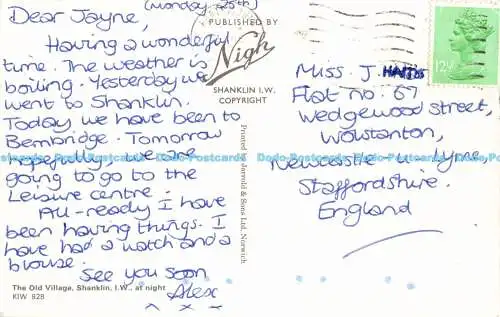 (Monday 25th)
Dear Jayne,
Having a wonderful
time. The weather is
boiling. Yesterday we
went to Shanklin.
Today we have been to
Bembridge. Tomorrow
hopefully we are
going to go to the
Leisure centre.
All-ready I have
been having things. I
have had a watch and a
blouse.
See you soon
Alex
x x
The Old Village, Shanklin, I.W., at night
KIW 828
PUBLISHED BY
Nigh
SHANKLIN I.W.
COPYRIGHT
Printed by Jarrold & Sons Ltd, Norwich
12½P
Miss J.
Flat no. 67
Wedgewood street,
Wolstanton,
Newcastle u Lyme
Staffordshire.
England
Dodo-Postcards Dodo-Postcards Dodo-Postcards Dodo-Postcards